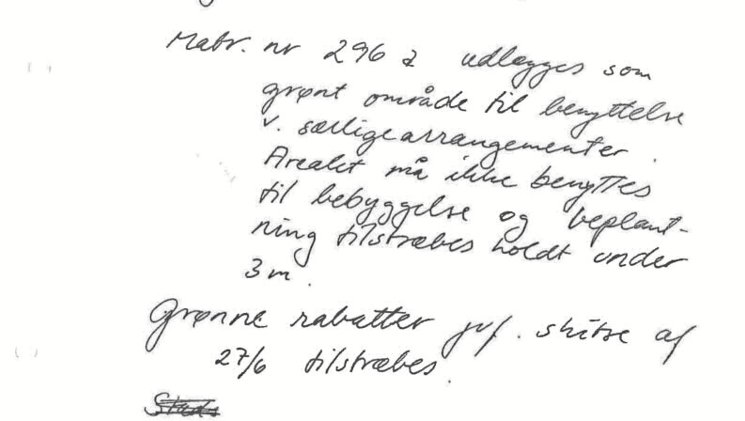 Matr. nr 296 a udlægges som
grønt område til benyttelse
v. særlige arrangementer.
Arealet må ikke benyttes
til bebyggelse og beplant-
ning tilstræbes holdt under
3 m.
Grønne rabatter jvf. skitse af
27/6 tilstræbes.